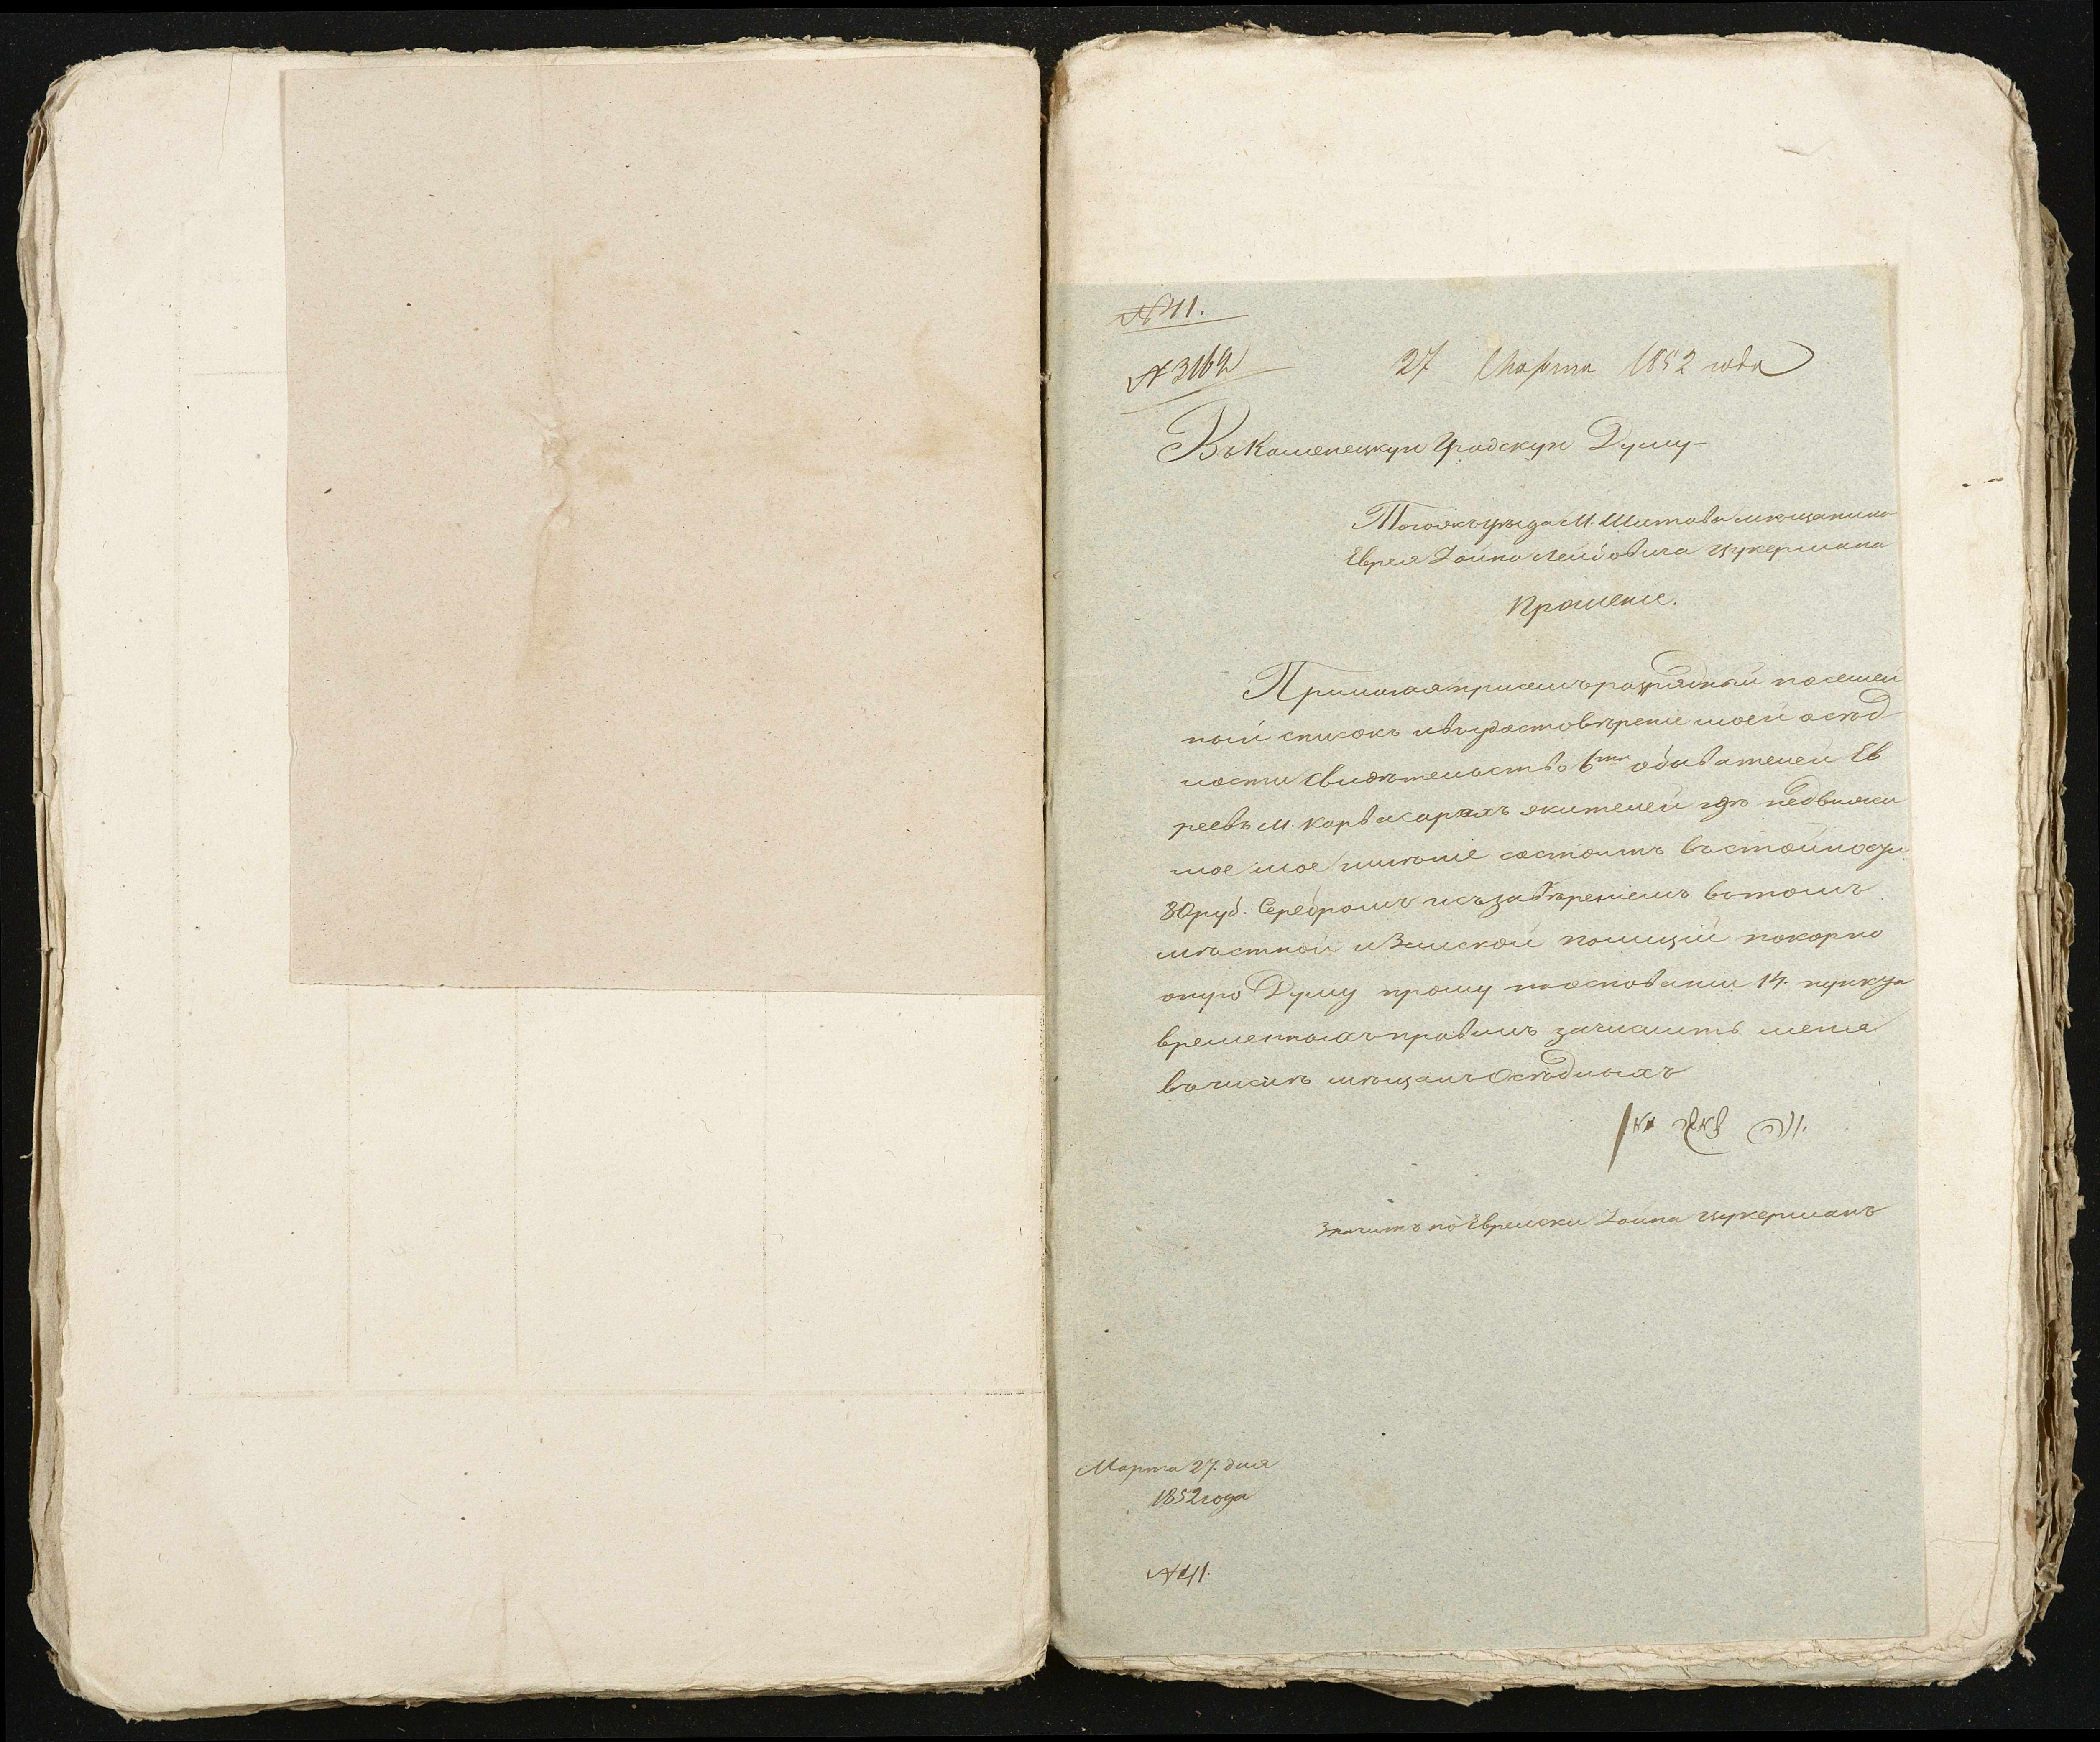 № 41.
№ 3164
27 Марта 1852 года
Въ Каменецкую Градскую Думу
Тогожъ уѣзда М. Шатава мещанина
Еврея Хаима Лейбовича Цукермана
Прошение.
Прилагая присемъ разрядный посемей
ный списокъ ивъудостовѣрение моей осѣд
лости Свидѣтельство 6ти обывателей Ев
реевъ М. Карвасарахъ жителей гдѣ недвижи
мое мое имѣние состоитъ въстоимости
80 руб. Серебромъ исъзавѣрениемъ вътомъ
мѣстной иЗемской полиции покорно
оную Думу прошу наосновании 14. пункта
временныхъ правилъ зачислить меня
въчисло мѣщанъ Осѣдлыхъ
Значитъ по Еврейски Хаимъ Цукерманъ
Марта 27. дня
1852 года
№ 41.